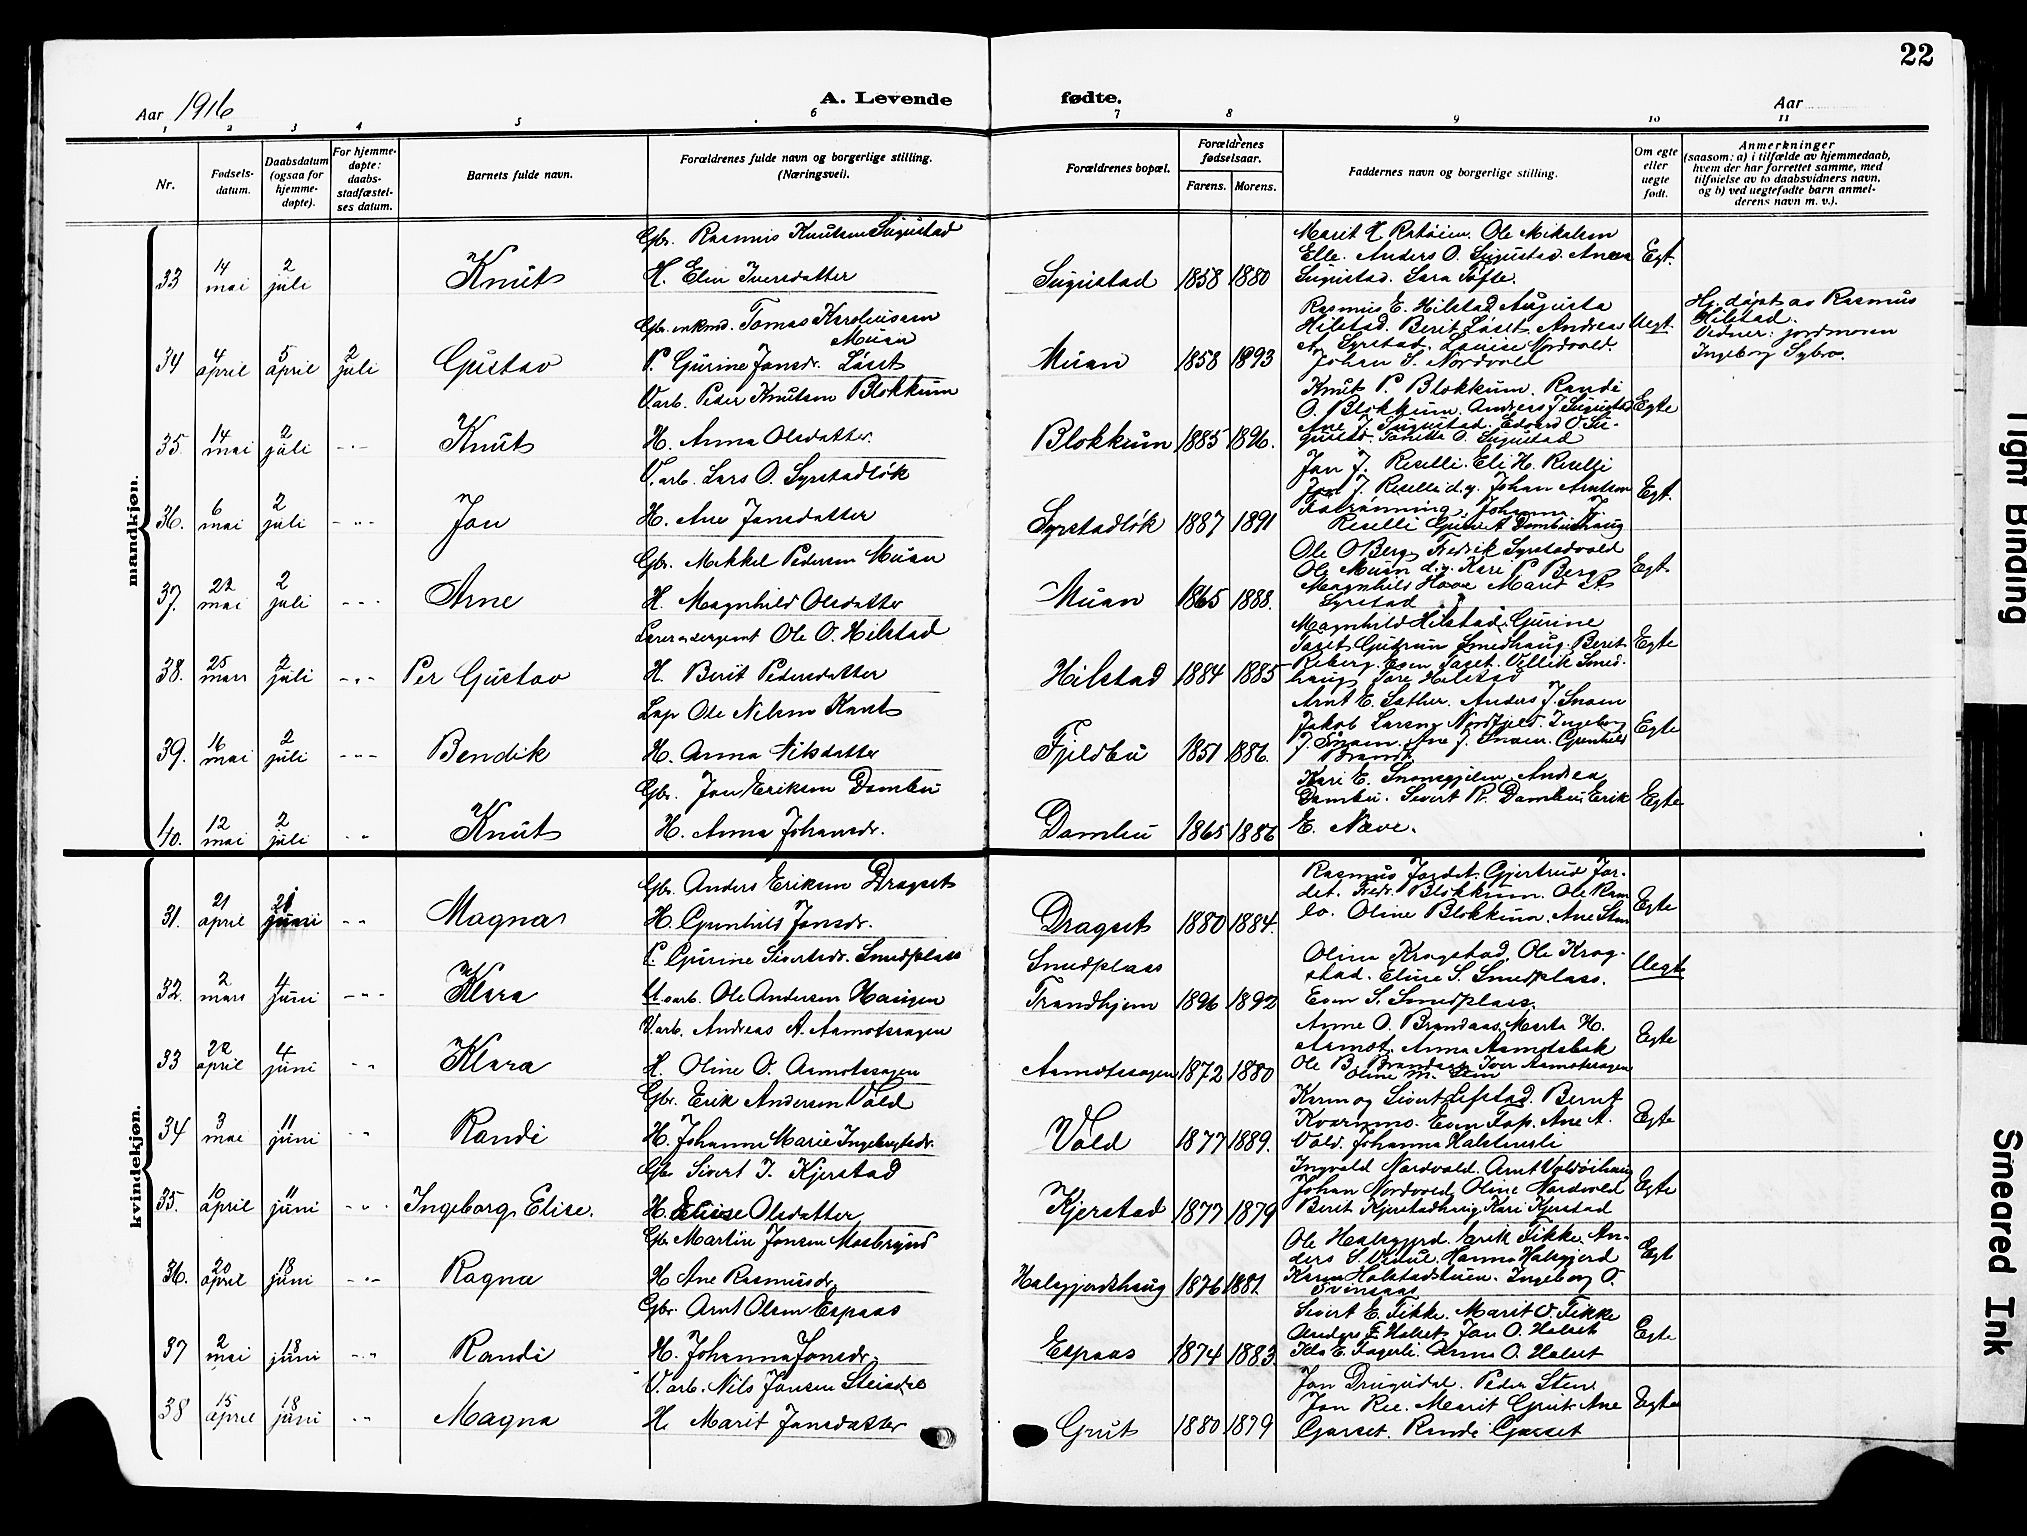 22
Aar 1916
A. Levende
fødte.
Aar
1 2 3 4 5 6 7 8 9 10 11
Nr.
Fødsels-
datum.
Daabsdatum
(ogsaa for
hjemme-
døpte).
For hjemme-
døpte:
daabs-
stadfæstel-
ses datum.
Barnets fulde navn.
Forældrenes fulde navn og borgerlige stilling.
(Næringsvei).
Forældrenes bopæl.
Forældrenes
fødselsaar.
Farens. Morens.
Faddernes navn og borgerlige stilling.
Om egte
eller
uegte
født.
Anmerkninger
(saasom: a) i tilfælde av hjemmedaab,
hvem der har forrettet samme, med
tilføielse av to daabsvidners navn,
og b) ved uegtefødte barn anmel-
derens navn m. v.).
mandkjøn.
33 14 mai 2 juli Knut
Gbr. Rasmus Knutsen Sugustad
H. Elin Iversdatter
Sugustad 1858 1880
Ole Mikalsen
Elle. Anders O. Sugustad.
Sugustad. Sara Tøfte.
Egt.
34 4 april 5 april 2 juli Gustav
Gbr. enkmd. Tomas Karoliussen
Muan
P. Gurine Jonsdr. Løset
Muan 1858 1893
Rasmus E. Hilstad Augusta
Hilstad. Berit Løset. Andreas
A. Syrstad. Louise Nordvold.
Johan S. Nordvold
Uegt.
Hj. døpt av Rasmus
Hilstad.
Vidner: jordmoren
Ingeborg
35. 14 mai 2 juli -"- Knut
V.arb. Peder Knutsen Blokkum
H. Anna Olsdatter.
Blokkum 1885 1896.
Knut P. Blokkum. Randi
O. Blokkum. Andreas J. Sugustad
Ane J. Sugustad. Edvard O. Su-
gustad. O. Sugustad
Egte
36. 6 mai 2 juli -"- Jon
V. arb. Lars O. Syrstadløk
H. Ane Jonsdatter
Syrstadløk 1887 1891
Jon J. Reselli. Eli H. Reselli
Jon J. Reselli d.y. Johan Arntsen
Johanna J.
Reselli
Egt.
37. 22 mai 2 juli -"- Arne
Gbr. Mikkel Pedersen Muan
H. Magnhild Olsdatter
Muan 1865 1888.
Ole O Berg Fredrik Syrstadvold
Ole Muan d.y. Kari P Berg
Magnhild Marit
Syrstad
Egt
38. 25 mars 2 juli -"- Per Gustav
Lærer og sergeant Ole O. Hilstad
H. Berit Pedersdatter
Hilstad 1884 1885
Magnhild Hilstad. Gurine
Gudrun Smedhaug. Berit
Smed-
haug Tore Hilstad
Egte
39. 16 mai 2 juli -"- Bendik
Lap Ole Nilsen Kant
H. Anna Nilsdatter
Fjeldbu 1851 1886.
Arnt E. Sæther. Anders J. Snoen
Jakob Larseng Nordfjeld. Ingeborg
J. Snoen. Ane J. Snoen. Gunhild
Brandt
Egte
40. 12 mai 2 juli -"- Knut
Gbr. Jon Eriksen Dombu
H. Anna Johansdr.
Dombu 1865 1886
Kari E. Andrea
Dombu. Sivert R. Dombu. Erik
E. Næve.
Egte
kvindekjøn.
31. 21 april 21 juni -"- Magna
Gbr. Anders Eriksen Dragset
H. Gunhild Jonsdr.
Dragset 1880 1884.
Rasmus Jordet. Gjertrud Jor-
det. Fredr. Blokkum. Ole Ram-
lo. Oline Blokkum. Ane Sten
Egte
32. 2 mars 4 juni -"- Klara
P. Gurine Sivertsdr. Smedplass
U.arb. Ole Andersen
Smedplass
Trondhjem 1896 1892
Oline Krogstad. Ole Krog-
stad. Eline S. Smedplass.
Even S. Smedplass.
Uegte
33 22 april 4 juni -"- Klara
V.arb. Andreas A. Aamotsagen
H. Oline O. Aamotsagen
Aamotsagen 1872 1880
Anne O. Brandaas. Marta H.
Aamot. Anna Aamotsbak
Ole B. Brandaas Iver Aamotsagen
Oline M. Sten
Egte
34 3 mai 11 juni -"- Randi
Gbr. Erik Andersen Vold
H. Johanna Marie Ingebrigtsdr.
Vold 1877 1889.
Karen og Sivert Lefstad. Bernt
Kvernmo. Even Fap. Ane A.
Vold. Johanna Halsteresli
Egte
35. 10 april 11 juni -"- Ingeborg Elise.
Gbr Sivert I. Kjerstad
H. Elise Olsdatter
Kjerstad 1877 1879
Ingvald Nordvold. Arnt Voldøihaug
Johan Nordvold. Oline Nordvold
Berit Kjerstadhaug Kari Kjerstad
Egte
36. 20 april 18 juni -"- Ragna
Gbr Martin Jonsen Mosbrynd
H Ane Rasmusdr.
Halsgjerdshaug 1876 1881
Ole Halsgjerd. Erik Fikke. An-
ders S. Hanna Halsgjerd
Karen Halstadstuen. Ingeborg O.
Svinsaas
Egt
37 2 mai 18 juni -"- Randi
Gbr. Arnt Olsen Espaas
H. Johanna Jonsdr.
Espaas 1874 1883
Sivert E. Fikke. Marit O Fikke
Anders E Halset. Jon O. Halset
Ida E. Fagerli. Anna O. Halset
Egte
38 15 april 18 juni -"- Magna
V. arb. Nils Jonsen Steindal
H. Marit Jonsdatter
Grut 1880 1879
Jon Drugudal. Peder Sten.
Jon Ree. Marit Grut. Ane
Garset. Randi Garset
Egte
Tight Binding
Smeared Ink